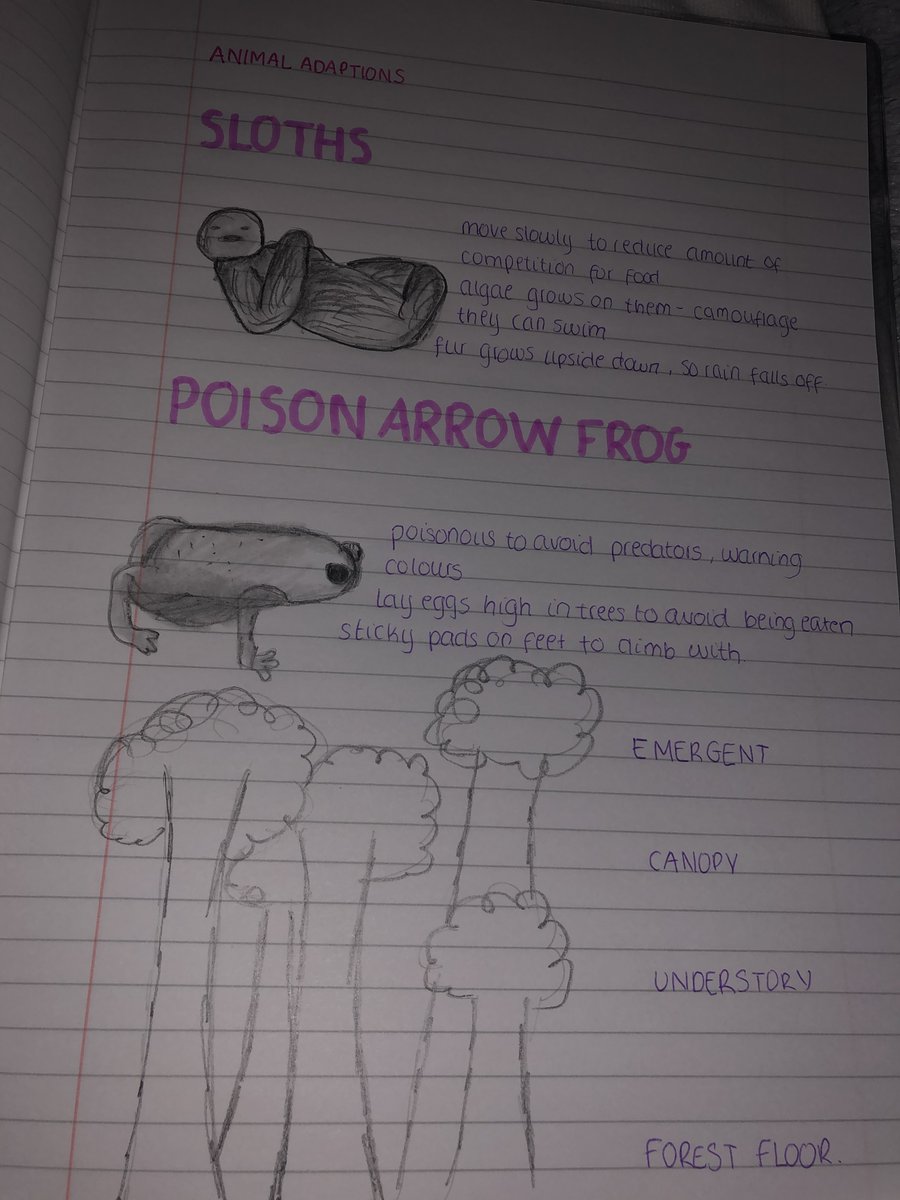 ANIMAL ADAPTIONS
SLOTHS
move slowly to reduce amount of
competition for food
algae grows on them - camouflage
they can swim
fur grows upside down, so rain falls off.
POISON ARROW FROG
poisonous to avoid predators, warning
colours
lay eggs high in trees to avoid being eaten
sticky pads on feet to climb with.
EMERGENT
CANOPY
UNDERSTORY
FOREST FLOOR.